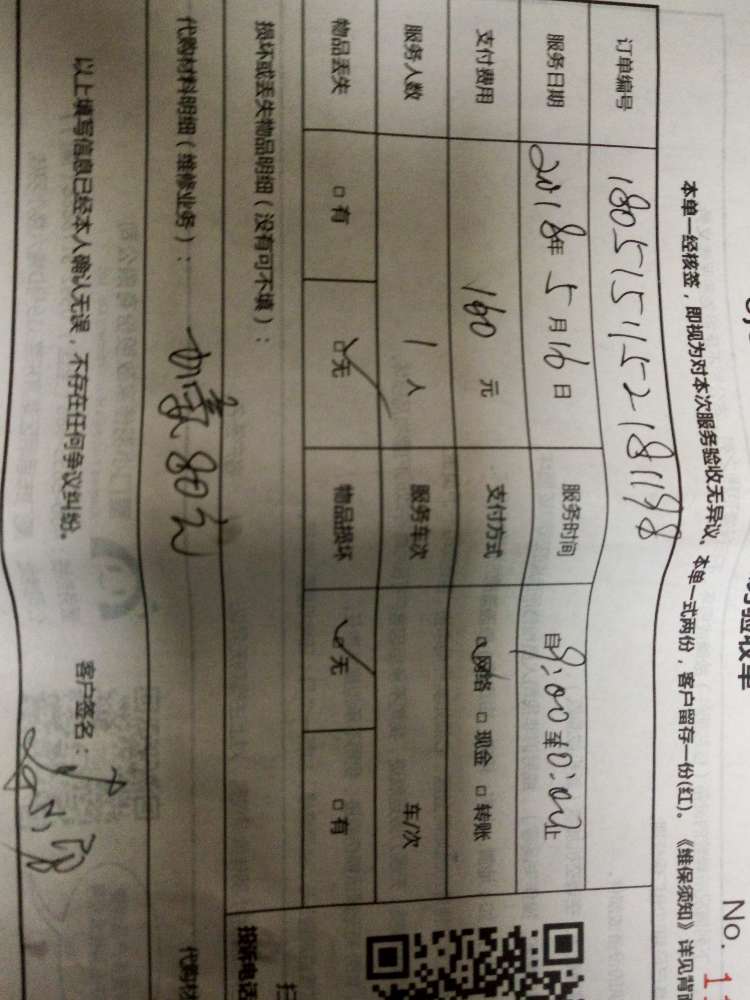 验收单
No. 1
本单一经核签，即视为对本次服务验收无异议。本单一式两份，客户留存一份(红)。《维保须知》详见背
订单编号 1805151152181198
服务日期 2018年5月16日 服务时间 自9:00至10:00止
支付费用 160元 支付方式 □网络 □现金 □转账
服务人数 1人 服务车次 车/次
物品丢失 □有 □无 物品损坏 □无 □有
损坏或丢失物品明细（没有可不填）：
投诉电话
代购材料明细（维修业务）： 加氟80元 代购材
以上填写信息已经本人确认无误，不存在任何争议纠纷。 客户签名：